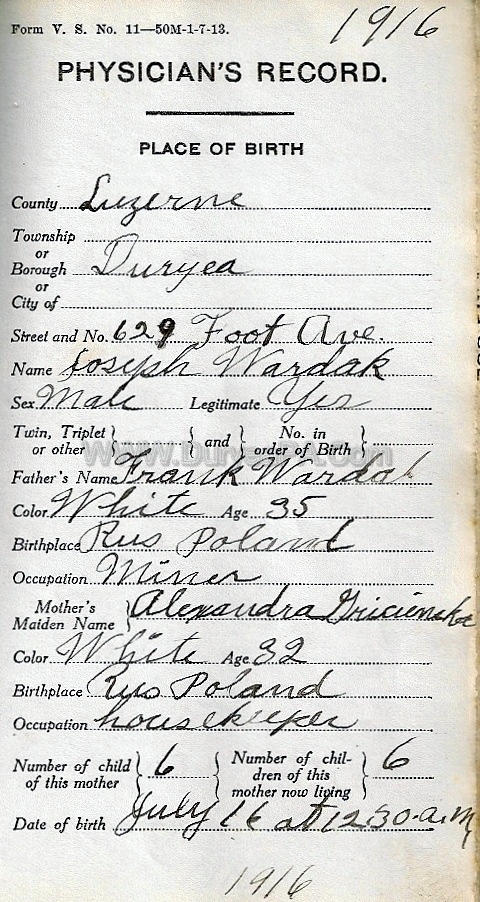 Form V. S. No. 11—50M-1-7-13.
1916
PHYSICIAN'S RECORD.
PLACE OF BIRTH
County Luzerne
Township
or
Borough Duryea
or
City of
Street and No. 629 Foot Ave.
Name Joseph Wardak
Sex Male Legitimate Yes
Twin, Triplet or other } { and } No. in order of Birth }
Father's Name Frank Wardak
Color White Age 35
Birthplace Rus Poland
Occupation Miner
Mother's Maiden Name } Alexandra
Color White Age 32
Birthplace Rus Poland
Occupation housekeeper
Number of child of this mother } 6 { Number of children of this mother now living } 6
Date of birth July 16 at 12 30 a.m
1916